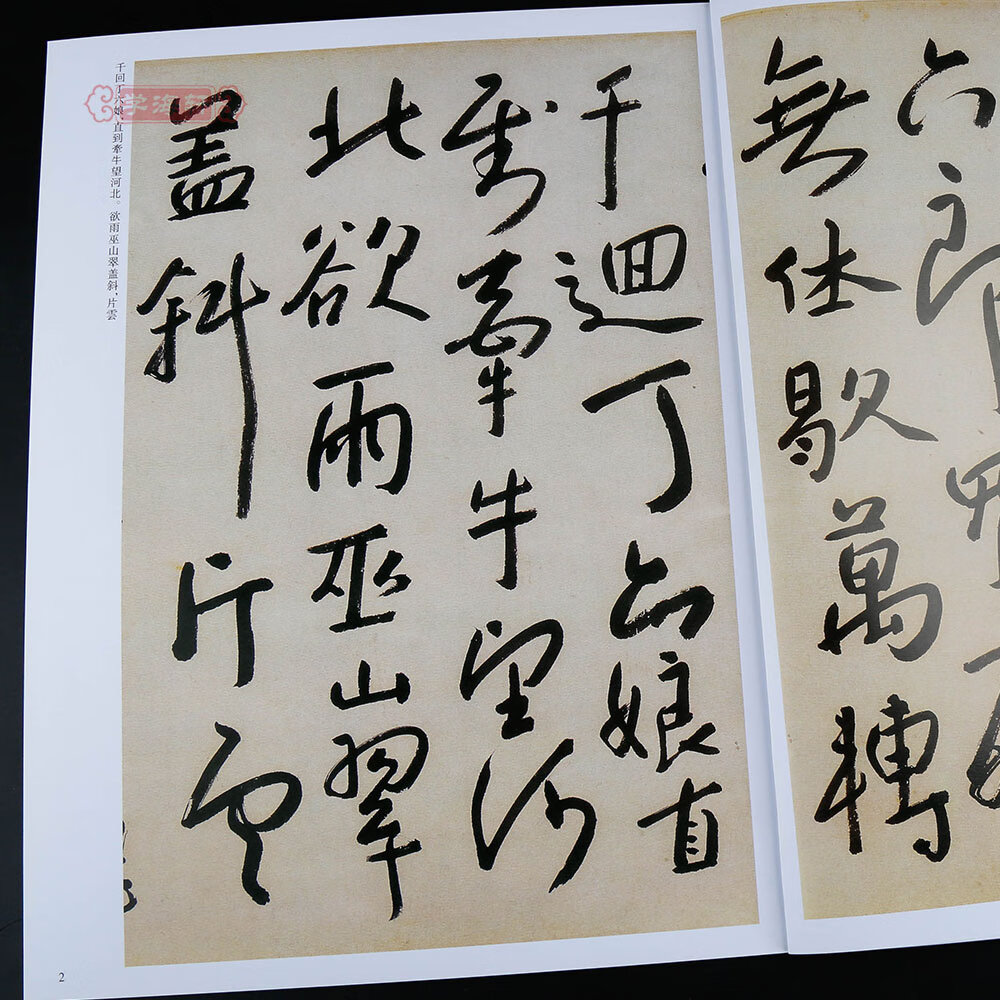 六郎
無休歇萬轉
千迴丁六娘直
到牽牛望河
北欲雨巫山翠
蓋斜片雲
千回丁六娘，直到牽牛望河北。欲雨巫山翠盖斜，片雲
学海轩
2